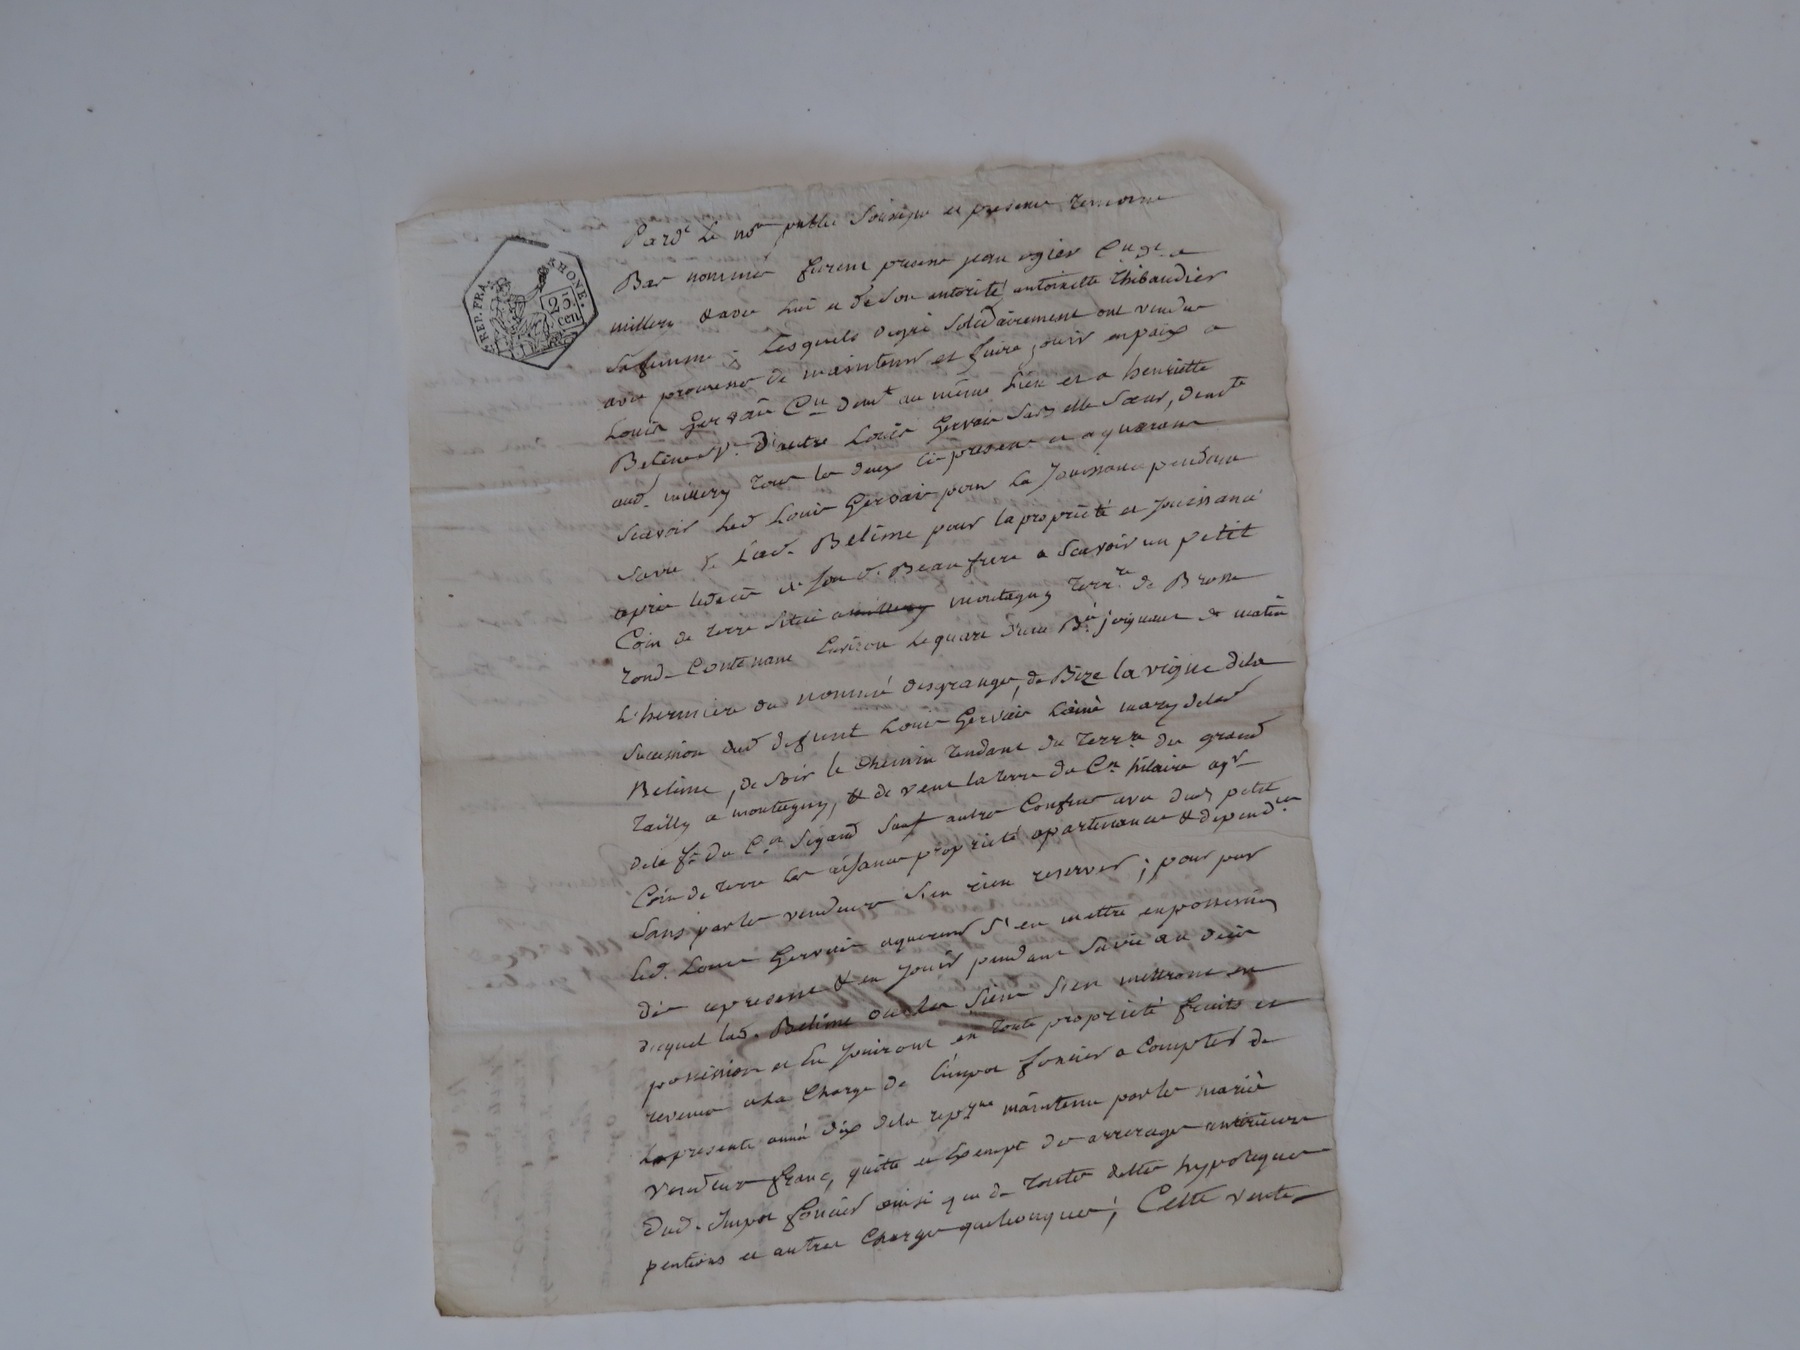 REP. FRA. RHONE.
25 cen
Pard.t Le no.re public Soussigné et présence temoins
Bas nommés furent present jean ogier C.en d.t a
millery & avec lui et de Son autorité antoinette thibaudier
Sa femme, Lesquels degré Solidairement ont vendu
avec promesse de maintenir et faire jouir en paix a
Louis Gervais C.en dem.t au même Lieu et a henriette
Belime v.e d'autre Louis Gervais Sa belle Sœur, dem.te
aud. millery tous les deux ci presens et aquereurs
Scavoir Led Louis Gervais pour La Jouissance pendant
Sa vie & Lad. Belime pour la propriété et Jouissance
après le decès de Son d. Beau frere a Scavoir un petit
Coin de terre Situé a millery montagny terr.re de Brosse
rond Contenant Environ Le quart d'une B.ée joignant de matin
L'hermiere du nommé desgranges, de Bize la vigne dela
Sucession dud defunt Louis Gervais L'ainé mary delad
Belime, de Soir le Chemin tendant du terr.re du grand
tailly a montagny, & de vent la terre du C.en hilaire ag.t
dela f.e du C.en Sigaud Sauf autres Confins avec dud petit
Coin de terre Les aisances propriété apartenances & depend.ces
Sans par les vendeurs S'en rien reserver; pour par
led. Louis Gervais aquereur S'en mettre en possession
dès apresent & en Jouir pendant Sa vie au decès
duquel lad. Belime ou les Siens S'en mettront en
possession et En Jouiront en toute propriété fruits et
revenus a La Charge de L'impot foncier a Compter de
La presente année dix dela rep.que maintenu par les mariés
Vendeurs franc, quitte et Exempt des arrerages anterieurs
Dud. Impot foncier ainsi que de toutes dettes hypoteques
pentions et autres Charges quelconques; Cette vente